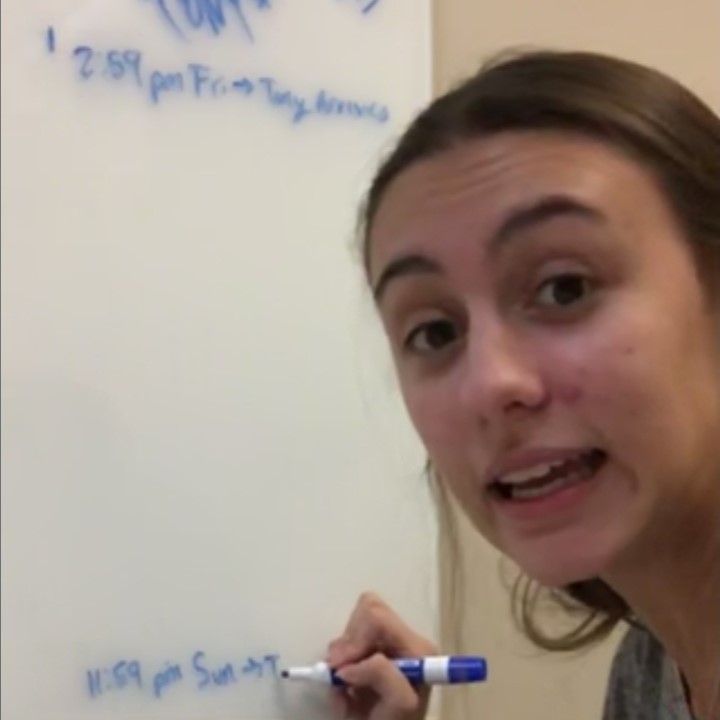 2:59 pm Fri → Tony Arrives
11:59 pm Sun → T